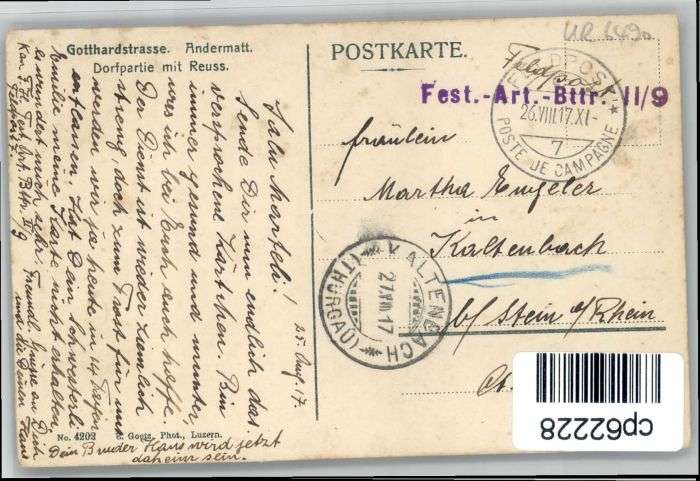 Gotthardstrasse. Andermatt.
Dorfpartie mit Reuss.
POSTKARTE.
UR 6490
Feldpost
FELDPOST
26.VIII.17.XI-
7
POSTE DE CAMPAGNE
Fest.-Art.-Bttr. II/9
Fräulein
Martha Engeler
in
Kaltenbach
b/ Stein a/Rhein
Ct.
KALTENBACH
27.VIII.17
(THURGAU)
25. Aug. 17.
Salu Marteli!
Sende Dir nun endlich das
versprochene Kärtchen. Bin
immer gesund und munter,
was ich bei Euch auch hoffe.
Der Dienst ist wieder ziemlich
streng, doch zum Trost für uns
werden wir ja heute in 14 Tagen
entlassen. Hat Dein Schwesterli
Emilie meine Karte nicht erhalten,
es wundert mich sehr. Freundl. Grüsse an Dich
und die Deinen Hans
Kan. Fest. Art. Bttr. II/9
Feldpost
No. 4202
E. Goetz, Phot., Luzern.
Dein Bruder Hans wird jetzt
daheim sein.
cp62228